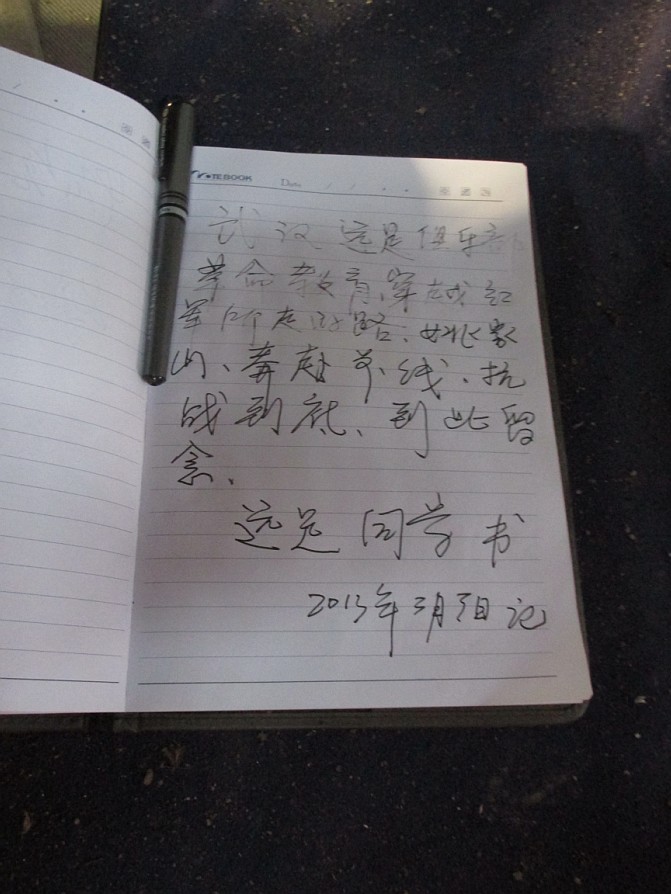 NOTEBOOK Date
武汉远足俱乐部
革命教育,穿越红
军所走的路:姚家
山、奔赴前线、抗
战到底、到此留
念、
远足同学书
2013年3月3日记